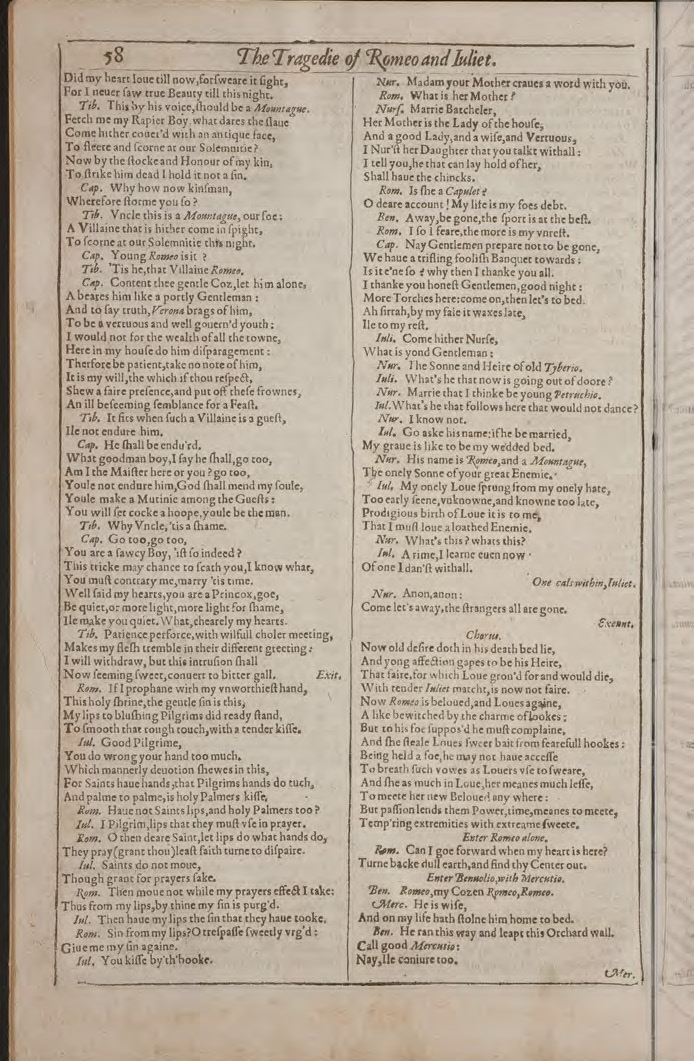 58
The Tragedie of Romeo and Iuliet.
Did my heart loue till now, forsweare it sight,
For I neuer saw true Beauty till this night.
Tib. This by his voice, should be a Mountague.
Fetch me my Rapier Boy, what dares the slaue
Come hither couer'd with an antique face,
To fleere and scorne at our Solemnitie?
Now by the stocke and Honour of my kin,
To strike him dead I hold it not a sin.
Cap. Why how now kinsman,
Wherefore storme you so?
Tib. Vncle this is a Mountague, our foe:
A Villaine that is hither come in spight,
To scorne at our Solemnitie this night.
Cap. Young Romeo is it?
Tib. 'Tis he, that Villaine Romeo.
Cap. Content thee gentle Coz, let him alone,
A beares him like a portly Gentleman:
And to say truth, Verona brags of him,
To be a vertuous and well gouern'd youth:
I would not for the wealth of all the towne,
Here in my house do him disparagement:
Therfore be patient, take no note of him,
It is my will, the which if thou respect,
Shew a faire presence, and put off these frownes,
An ill beseeming semblance for a Feast.
Tib. It fits when such a Villaine is a guest,
Ile not endure him.
Cap. He shall be endu'rd.
What goodman boy, I say he shall, go too,
Am I the Maister here or you? go too,
Youle not endure him, God shall mend my soule,
Youle make a Mutinie among the Guests:
You will set cocke a hoope, youle be the man.
Tib. Why Vncle, 'tis a shame.
Cap. Go too, go too,
You are a sawcy Boy, 'ist so indeed?
This tricke may chance to scath you, I know what,
You must contrary me, marry 'tis time.
Well said my hearts, you are a Princox, goe,
Be quiet, or more light, more light for shame,
Ile make you quiet. What, chearely my hearts.
Tib. Patience perforce, with wilfull choler meeting,
Makes my flesh tremble in their different greeting:
I will withdraw, but this intrusion shall
Now seeming sweet, conuert to bitter gall. Exit.
Rom. If I prophane with my vnworthiest hand,
This holy shrine, the gentle sin is this,
My lips to blushing Pilgrims did ready stand,
To smooth that rough touch, with a tender kisse.
Iul. Good Pilgrime,
You do wrong your hand too much.
Which mannerly deuotion shewes in this,
For Saints haue hands, that Pilgrims hands do tuch,
And palme to palme, is holy Palmers kisse.
Rom. Haue not Saints lips, and holy Palmers too?
Iul. I Pilgrim, lips that they must vse in prayer.
Rom. O then deare Saint, let lips do what hands do,
They pray (grant thou) least faith turne to dispaire.
Iul. Saints do not moue,
Though grant for prayers sake.
Rom. Then moue not while my prayers effect I take:
Thus from my lips, by thine my sin is purg'd.
Iul. Then haue my lips the sin that they haue tooke.
Rom. Sin from my lips? O trespasse sweetly vrg'd:
Giue me my sin againe.
Iul. You kisse by'th'booke.
Nur. Madam your Mother craues a word with you.
Rom. What is her Mother?
Nurs. Marrie Batcheler,
Her Mother is the Lady of the house,
And a good Lady, and a wise, and Vertuous,
I Nur'st her Daughter that you talkt withall:
I tell you, he that can lay hold of her,
Shall haue the chincks.
Rom. Is she a Capulet?
O deare account! My life is my foes debt.
Ben. Away, be gone, the sport is at the best.
Rom. I so I feare, the more is my vnrest.
Cap. Nay Gentlemen prepare not to be gone,
We haue a trifling foolish Banquet towards:
Is it e'ne so? why then I thanke you all.
I thanke you honest Gentlemen, good night:
More Torches here: come on, then let's to bed.
Ah sirrah, by my faie it waxes late,
Ile to my rest.
Iuli. Come hither Nurse,
What is yond Gentleman:
Nur. The Sonne and Heire of old Tyberio.
Iuli. What's he that now is going out of doore?
Nur. Marrie that I thinke be young Petruchio.
Iul. What's he that follows here that would not dance?
Nur. I know not.
Iul. Go aske his name: if he be married,
My graue is like to be my wedded bed.
Nur. His name is Romeo, and a Mountague,
The onely Sonne of your great Enemie.
Iul. My onely Loue sprung from my onely hate,
Too early seene, vnknowne, and knowne too late,
Prodigious birth of Loue it is to me,
That I must loue a loathed Enemie.
Nur. What's this? whats this?
Iul. A rime, I learne euen now
Of one I dan'st withall.
One cals within, Iuliet.
Nur. Anon, anon:
Come let's away, the strangers all are gone.
Exeunt.
Chorus.
Now old desire doth in his death bed lie,
And yong affection gapes to be his Heire,
That faire, for which Loue gron'd for and would die,
With tender Iuliet matcht, is now not faire.
Now Romeo is beloued, and Loues againe,
A like bewitched by the charme of lookes:
But to his foe suppos'd he must complaine,
And she steale Loues sweet bait from fearefull hookes:
Being held a foe, he may not haue accesse
To breath such vowes as Louers vse to sweare,
And she as much in Loue, her meanes much lesse,
To meete her new Beloued any where:
But passion lends them Power, time, meanes to meete,
Temp'ring extremities with extreame sweete.
Enter Romeo alone.
Rom. Can I goe forward when my heart is here?
Turne backe dull earth, and find thy Center out.
Enter Benuolio, with Mercutio.
Ben. Romeo, my Cozen Romeo, Romeo.
Merc. He is wise,
And on my life hath stolne him home to bed.
Ben. He ran this way and leapt this Orchard wall.
Call good Mercutio:
Nay, Ile coniure too.
Mer.